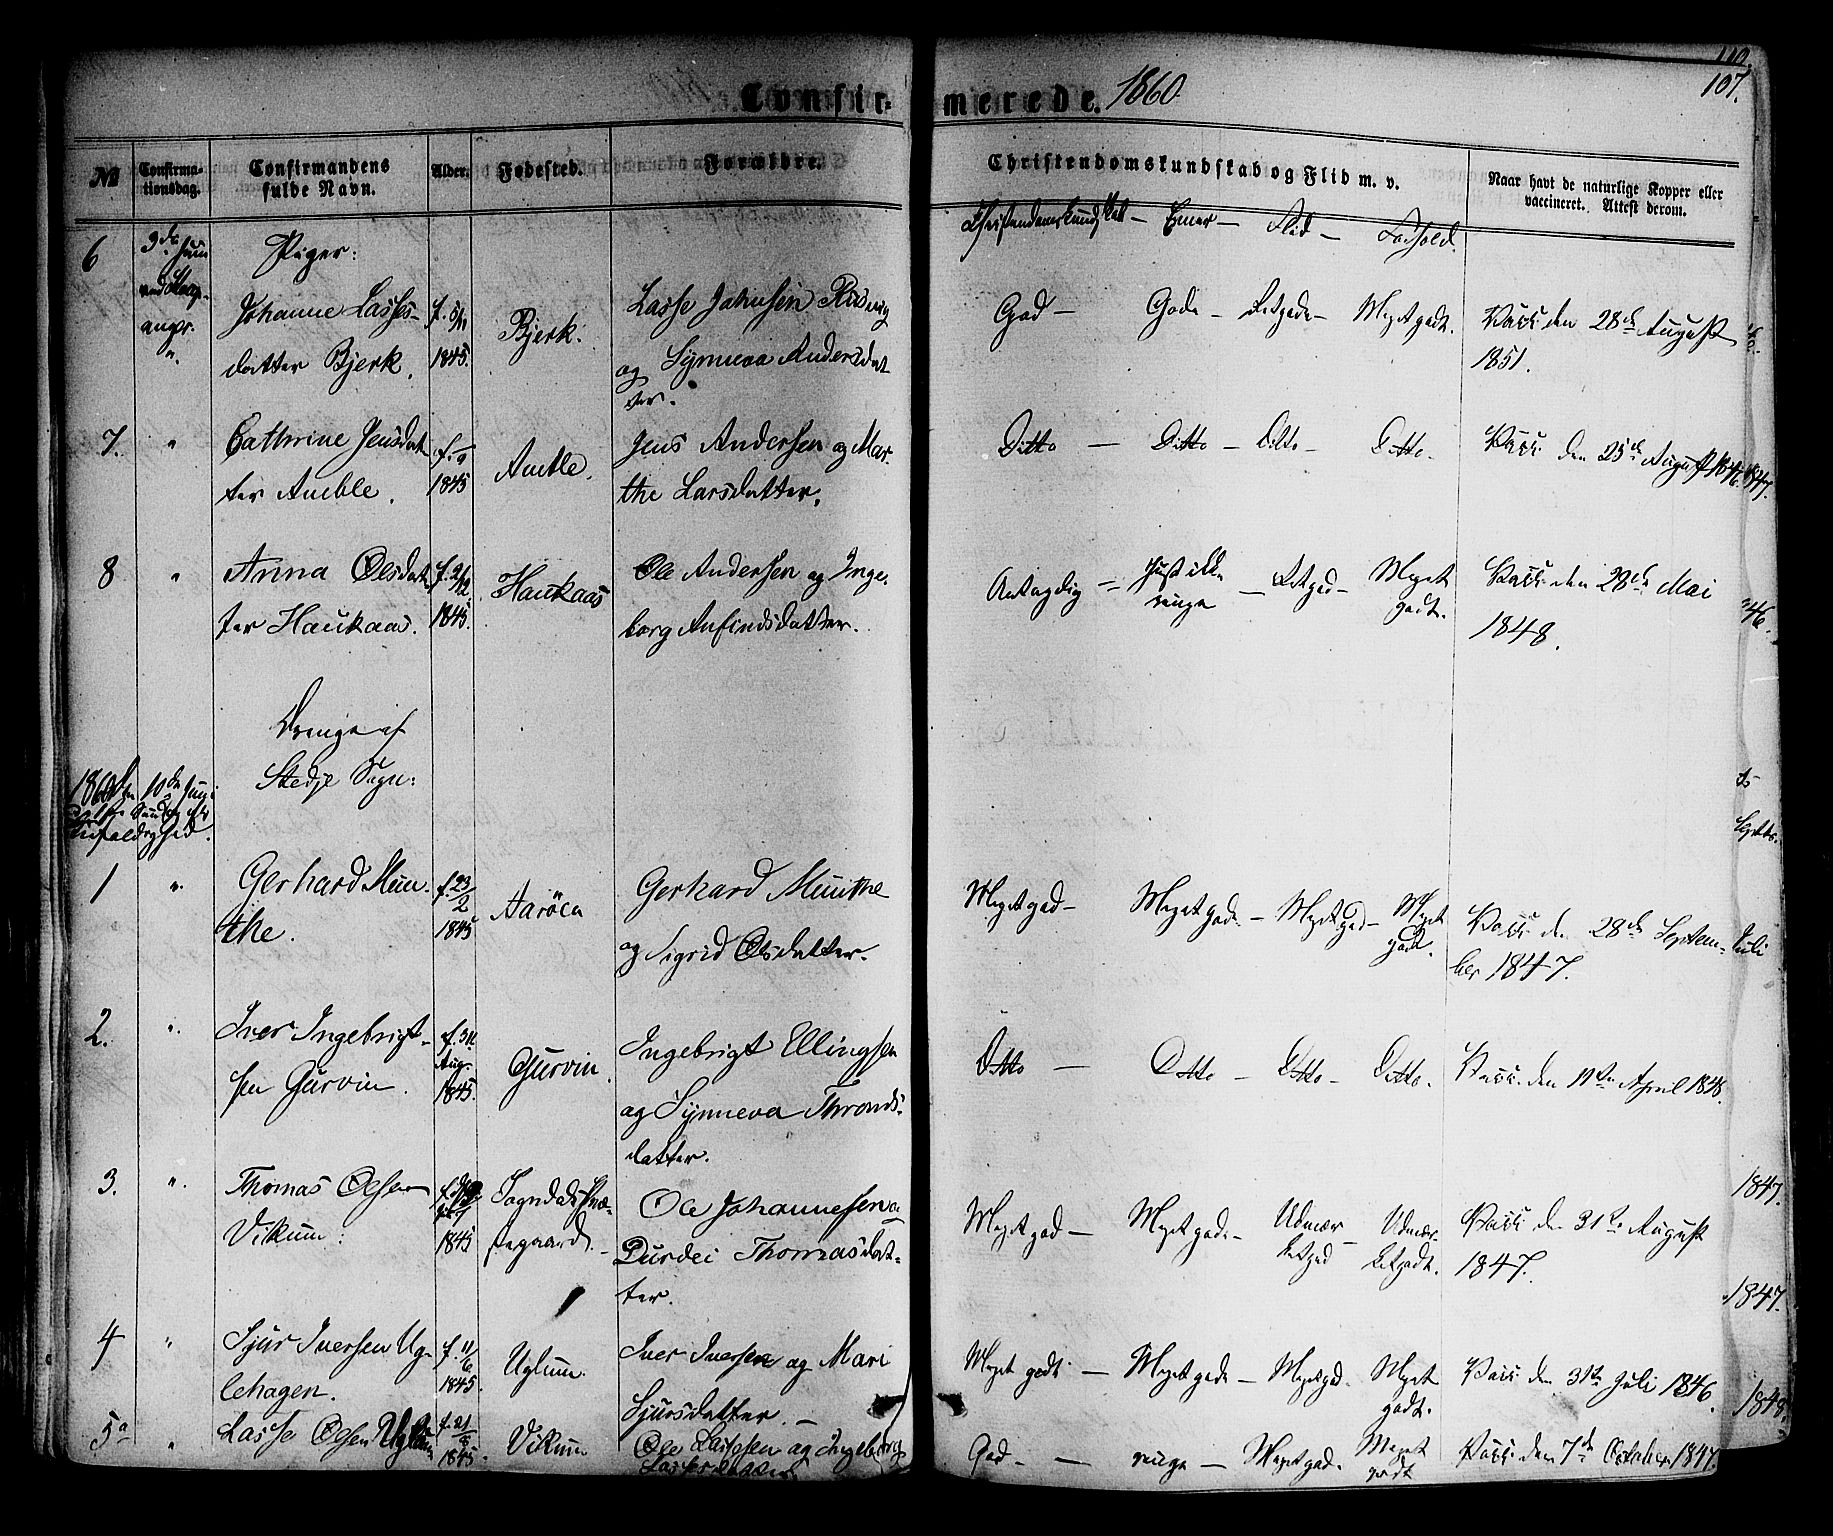 Confirmerede. 1860.
110.
107.
№
Confirma-
tionsdag.
Confirmandens
fulde Navn.
Alder.
Fødested.
Forældre.
Christendomskundskab og Flid m. v.
Naar havt de naturlige Kopper eller
vaccineret. Attest derom.
Christendomskundskab — Evner — Flid — Forhold.
6
3de Juni
Piger:
Johanne Lasses-
datter Bjerk.
1845.
Bjerk.
Lasse Johnsen
og Synneva Andersdat
ter.
God —
Gode —
Retgode —
Meget godt.
Vacc. den 28de August
1851.
7.
"
Cathrine Jensdat
ter Amble.
1845
Amble.
Jens Andersen og Mar-
the Larsdatter.
Ditto —
Ditto —
Ditto —
Ditto.
Vacc. den 25de August 1846.
1847.
8
"
Anna Olsdat
ter Haukaas.
f. 2/12
1845.
Haukaas
Ole Andersen og Inge-
borg Anfindsdatter.
Antagelig —
Just ikke
ringe —
Retgod —
Meget
godt.
Vacc. den 28de Mai
1848.
46.
Drenge af
Stedje Sogn:
1860 den 10de Juni
1
"
Gerhard Mun-
the.
f. 23/2
1845
Aarøen
Gerhard Munthe
og Sigrid Olsdatter.
Meget god —
Meget gode —
Meget god —
Meget
godt.
Vacc. den 28de Septem-
ber 1847.
Juli
2.
"
Iver Ingebrigt-
sen Gurvin.
Aug.
1845.
Gurvin.
Ingebrigt Ellingsen
og Synneva Thronds-
datter.
Ditto —
Ditto —
Ditto —
Ditto.
Vacc. den 11te April 1848.
3.
"
Thomas Olsen
Vikum.
1845
Sogndals Præ-
stegaard.
Ole Johannesen og
Durdei Thomasdat-
ter.
Meget god —
Meget gode —
Udmær-
ket god
Udmær-
ket godt.
Vacc. den 31te August
1847.
1847.
1847.
4
"
Sjur Iversen Ug-
lehagen.
f. 11/6
1845.
Uglum.
Iver Iversen og Mari
Sjursdatter. —
Meget godt —
Meget gode —
Meget god.
Meget
godt.
Vacc. den 31te Juli 1846.
1848.
5a
"
Lasse Olsen Uglum
1845.
Vikum
Ole Lassesen og Ingeborg
Lassesdatter
God — —
ringe —
Meget god.
Meget
godt
Vacc. den 7de October 1847.